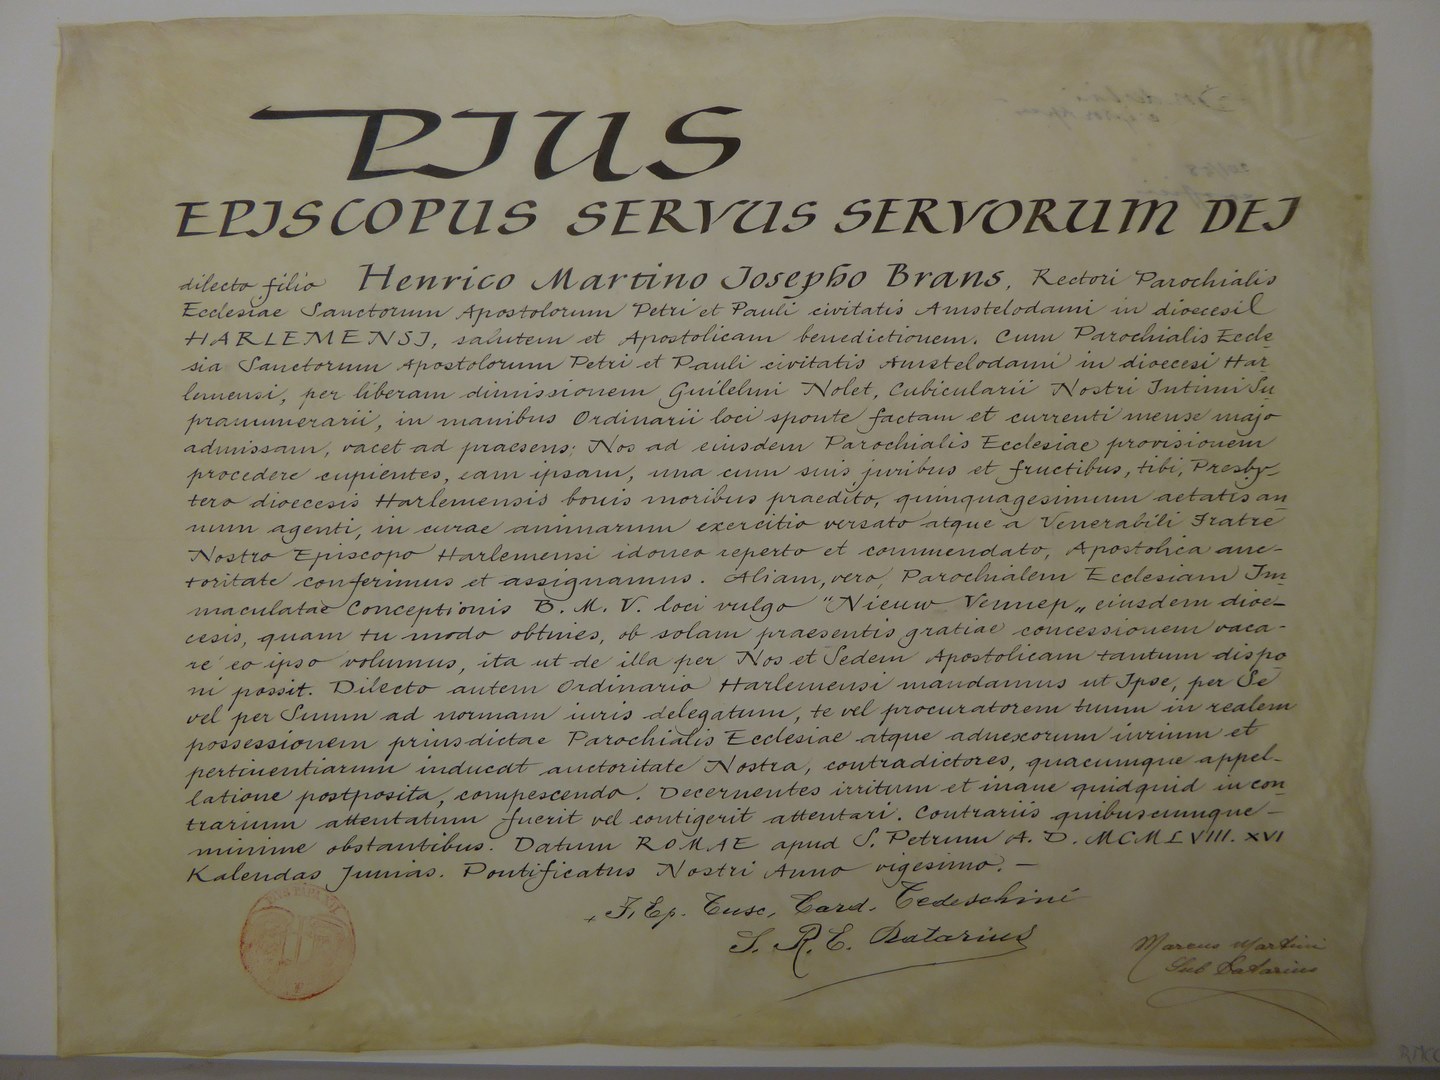 PIUS
EPISCOPUS SERVUS SERVORUM DEI
dilecto filio Henrico Martino Iosepho Brans, Rectori Parochialis
Ecclesiae Sanctorum Apostolorum Petri et Pauli civitatis Amstelodami in dioecesi
HARLEMENSI, salutem et Apostolicam benedictionem. Cum Parochialis Eccle-
sia Sanctorum Apostolorum Petri et Pauli civitatis Amstelodami in dioecesi Har
lemensi, per liberam dimissionem Guilelmi Nolet, Cubicularii Nostri Intimi Su
pranumerarii, in manibus Ordinarii loci sponte factam et currenti mense majo
admissam, vacet ad praesens; Nos ad eiusdem Parochialis Ecclesiae provisionem
procedere cupientes, eam ipsam, una cum suis juribus et fructibus, tibi, Presby-
tero dioecesis Harlemensis bonis moribus praedito, quinquagesimum aetatis an
num agenti, in curae animarum exercitio versato atque a Venerabili Fratre
Nostro Episcopo Harlemensi idoneo reperto et commendato, Apostolica auc-
toritate conferimus et assignamus. Aliam, vero, Parochialem Ecclesiam Im
maculatae Conceptionis B. M. V. loci vulgo "Nieuw Vennep„ eiusdem dioe-
cesis, quam tu modo obtines, ob solam praesentis gratiae concessionem vaca-
re eo ipso volumus, ita ut de illa per Nos et Sedem Apostolicam tantum dispo
ni possit. Dilecto autem Ordinario Harlemensi mandamus ut Ipse, per Se
vel per Suum ad normam iuris delegatum, te vel procuratorem tuum in realem
possessionem priusdictae Parochialis Ecclesiae atque adnexorum iurium et
pertinentiarum inducat auctoritate Nostra, contradictores, quacumque appel-
latione postposita, compescendo. Decernentes irritum et inane quidquid in con
trarium attentatum fuerit vel contigerit attentari. Contrariis quibuscumque
minime obstantibus. Datum ROMAE apud S. Petrum A. D. MCMLVIII. XVI
Kalendas Junias. Pontificatus Nostri Anno vigesimo. —
+ F. Ep. Tusc. Card. Tedeschini
S. R. E. Datarius
Marcus Martini
Sub Datarius